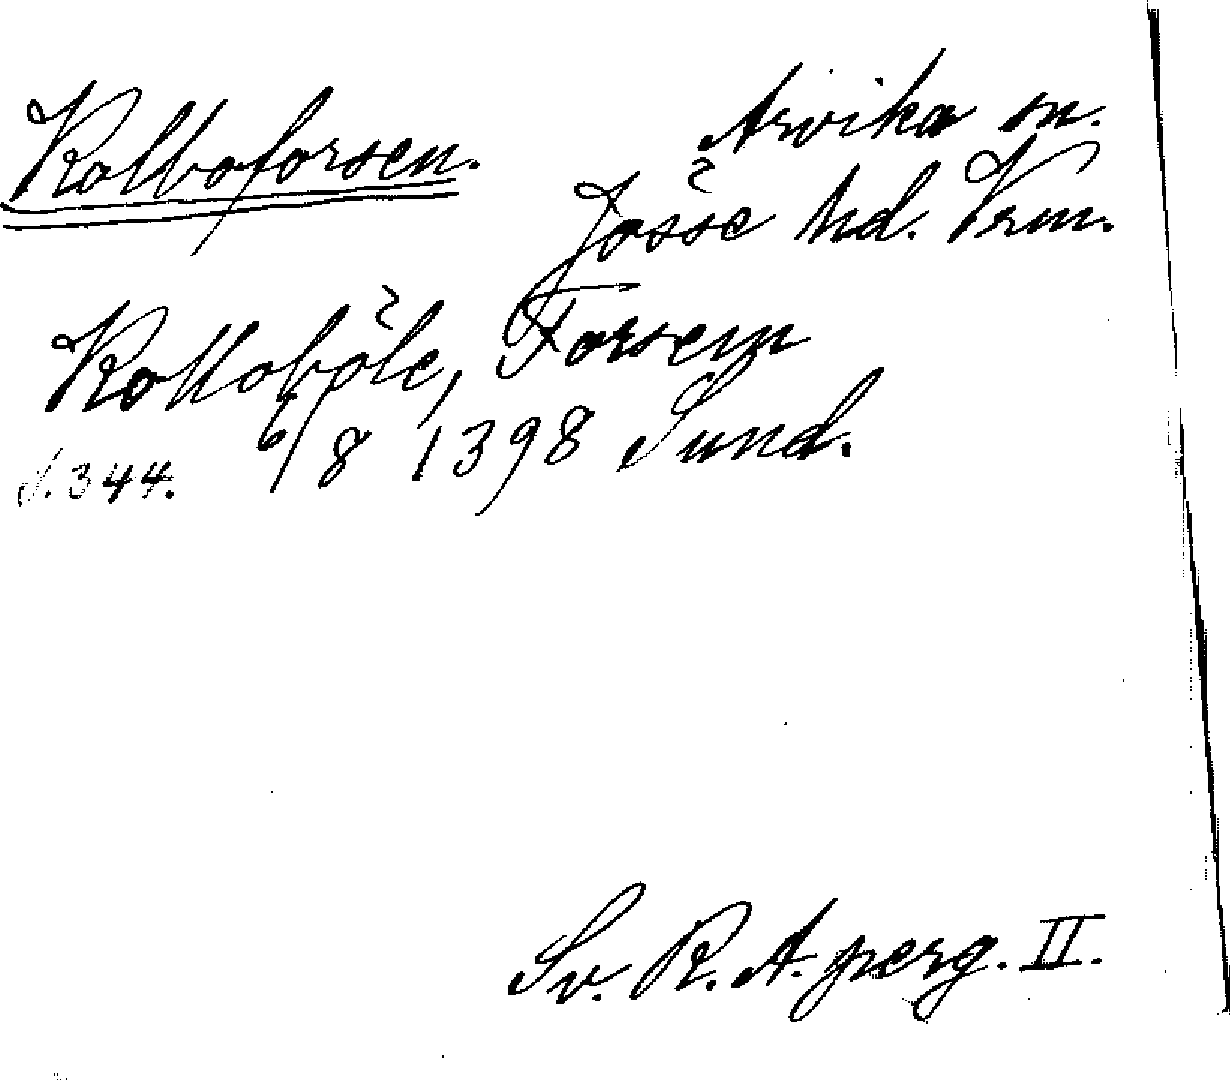 Kolboforsen.
Arvika sn.
Jösse hd. Vrm.
Kolloböle, Forsem
6/8 1398 Sund.
S. 344.
Sv. R. A. perg. II.